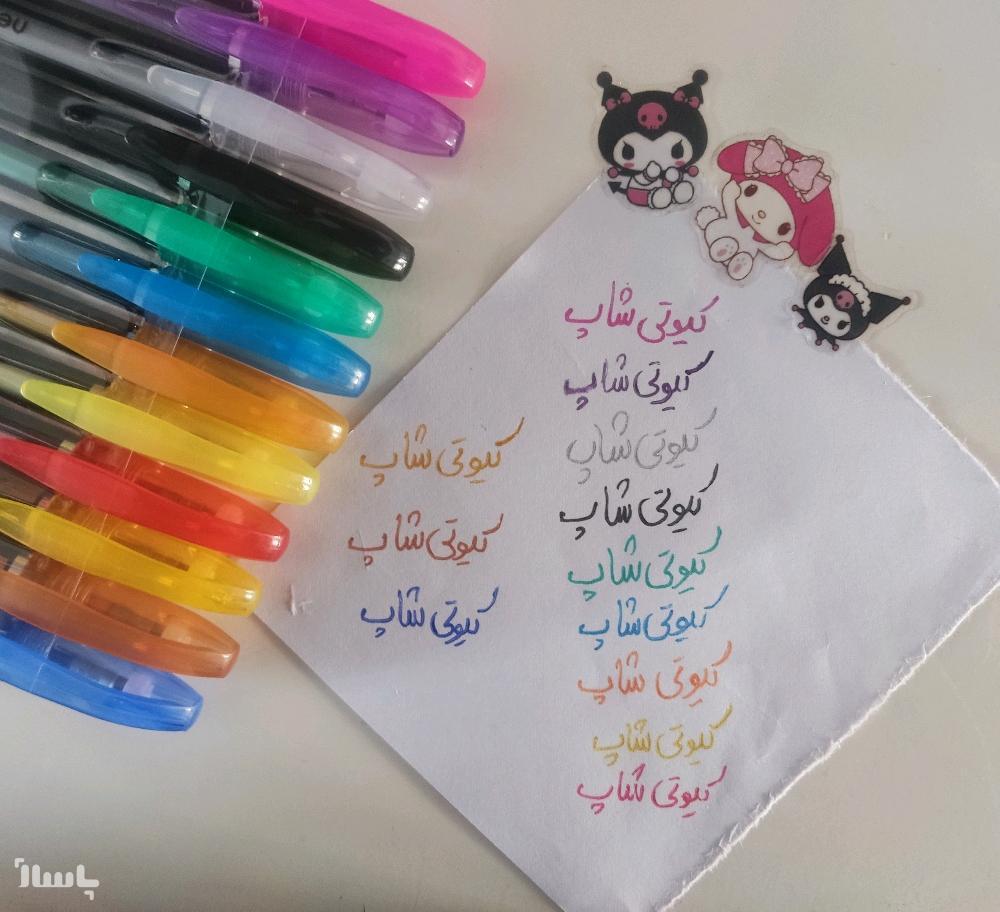 کیوتی شاپ
کیوتی شاپ
کیوتی شاپ
کیوتی شاپ
کیوتی شاپ
کیوتی شاپ
کیوتی شاپ
کیوتی شاپ
کیوتی شاپ
کیوتی شاپ
کیوتی شاپ
کیوتی شاپ
پاساژ